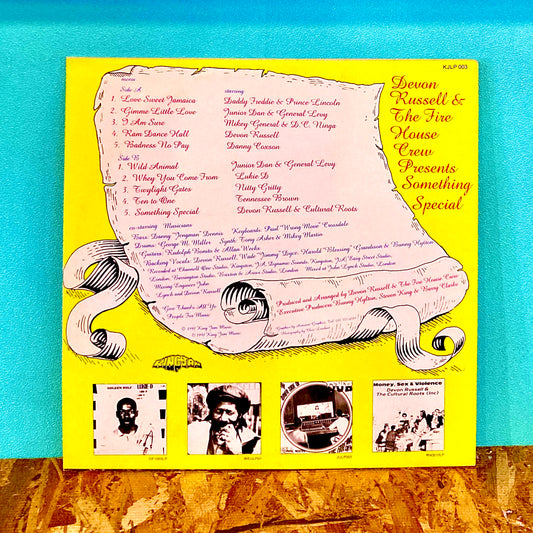 KJLP 003
Devon
Russell &
The Fire
House
Crew
Presents
Something
Special
menu
Side A starring
1. Love Sweet Jamaica Daddy Freddie & Prince Lincoln
2. Gimme Little Love Junior Dan & General Levy
3. I Am Sure Mikey General & D.C. Ninga
4. Ram Dance Hall Devon Russell
5. Badness No Pay Danny Coxson
Side B
1. Wild Animal Junior Dan & General Levy
2. Whey You Come From Lukie D
3. Twylight Gates Nitty Gritty
4. Ten to One Tennessee Brown
5. Something Special Devon Russell & Cultural Roots
co-starring Musicians
Bass: Danny Jengman Dennis Keyboards: Paul "Wrong Move" Crossdale
Drums: George M. Miller Synth: Tony Asher & Mikey Martin
Guitars: Rudolph Bonito & Allan Weeks
Backing Vocals: Devon Russell, Wade "Jimmy" Dyce, Harold "Blessing" Gunderson & Barry Hylton
Recorded at Channell One Studio, Kingston, J.A. Dynamic Sounds, Kingston, J.A. Easy Street Studio,
London, Theorington Studio, Brixton & Ariwa Studio, London. Mixed at John Lynch Studio, London.
Mixing Engineer John
Lynch and Devon Russell
Produced and Arranged by Devon Russell & The Fire House Crew
Executive Producers Barry Hylton, Steven King & Barry Clarke
Give Thanks All Ye
People For Music
King Jam Music
King Jam Music
KINGJAM
GOLDEN WOLF
LUKIE D
Money, Sex & Violence
Devon Russell &
The Cultural Roots (Inc)